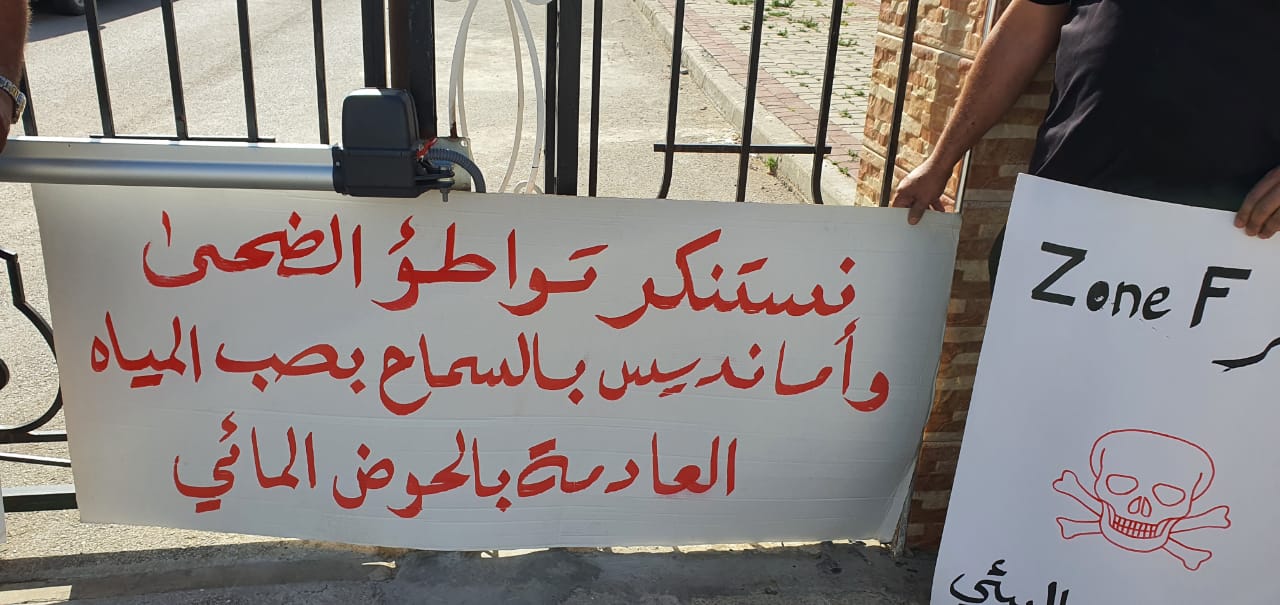 نستنكر تواطؤ الضحى
وأمانديس بالسماح بصب المياه
العادمة بالحوض المائي
Zone F
البيئي